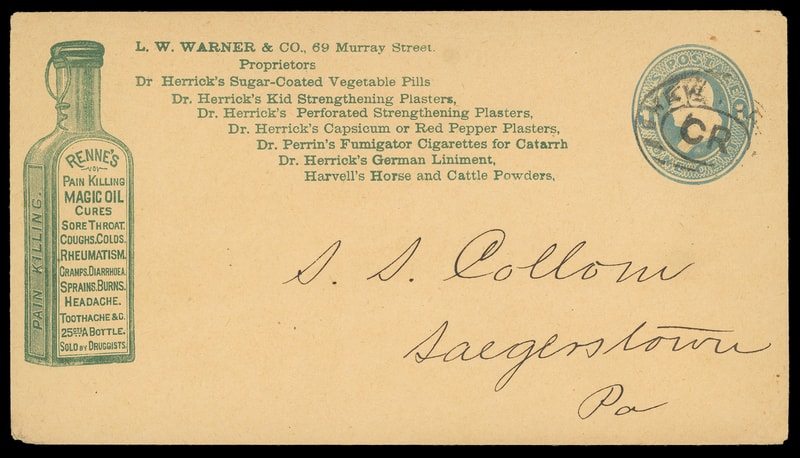 L. W. WARNER & CO., 69 Murray Street.
Proprietors
Dr Herrick's Sugar-Coated Vegetable Pills
Dr. Herrick's Kid Strengthening Plasters,
Dr. Herrick's Perforated Strengthening Plasters,
Dr. Herrick's Capsicum or Red Pepper Plasters,
Dr. Perrin's Fumigator Cigarettes for Catarrh
Dr. Herrick's German Liniment,
Harvell's Horse and Cattle Powders,
PAIN KILLING.
RENNE'S
PAIN KILLING
MAGIC OIL
CURES
SORE THROAT.
COUGHS. COLDS.
RHEUMATISM.
CRAMPS. DIARRHOEA.
SPRAINS. BURNS.
HEADACHE.
TOOTHACHE &C.
25 CTS A BOTTLE.
SOLD BY DRUGGISTS.
U.S. POSTAGE
NEW
CR
S. S. Collom
Saegerstown
Pa